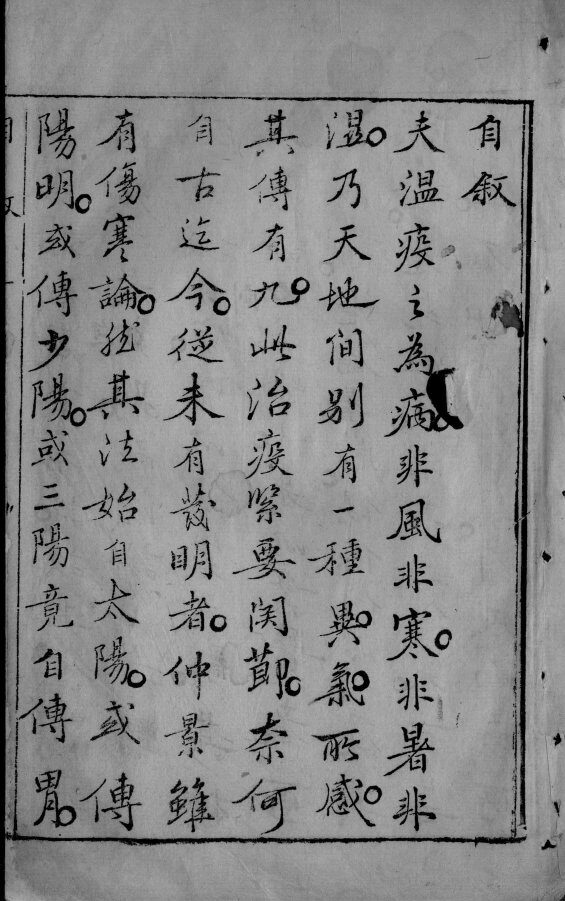 自叙
夫温疫之為病。非風非寒。非暑非
湿。乃天地间别有一種異。氣。所感。
其傳有九。此治疫緊要関節。奈何
自古迄今。從未有發明者。仲景雖
有傷寒論。然其法始自太陽。或傳
陽明。或傳少陽。或三陽竟自傳胃。